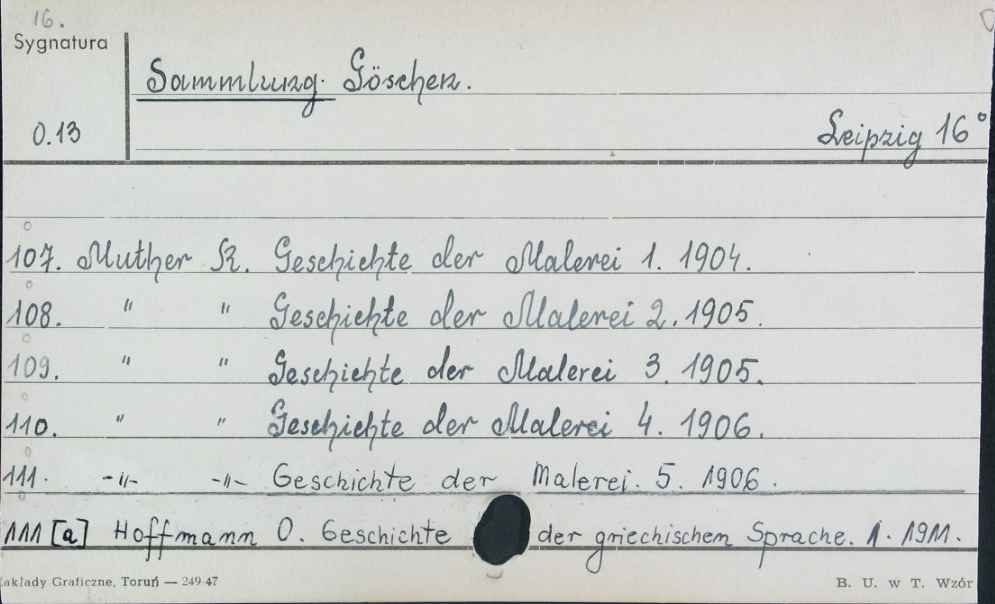 16.
Sygnatura
Sammlung Göschen.
0.13
Leipzig 16°
107. Muther R. Geschichte der Malerei 1. 1904.
108. " " Geschichte der Malerei 2. 1905.
109. " " Geschichte der Malerei 3. 1905.
110. " " Geschichte der Malerei 4. 1906.
111. -"- -"- Geschichte der Malerei. 5. 1906.
111 [a] Hoffmann O. Geschichte der griechischen Sprache. 1. 1911.
akłady Graficzne, Toruń — 249 47
B. U. w T. Wzór